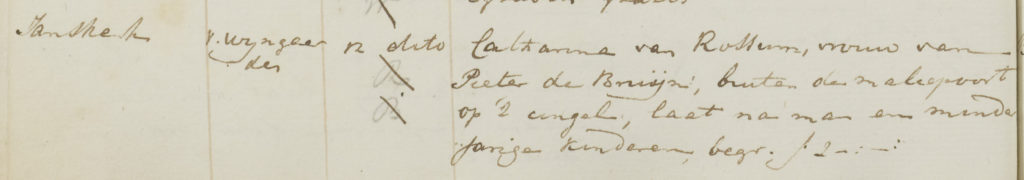 Janskerk v. Wyngaer 12 dito Catharina van Rossum, vrouw van
der Pieter de Bruijn, buiten de maliepoort
op 't cingel, laat na man en minder
jarige kinderen, begr. f 2-:-: